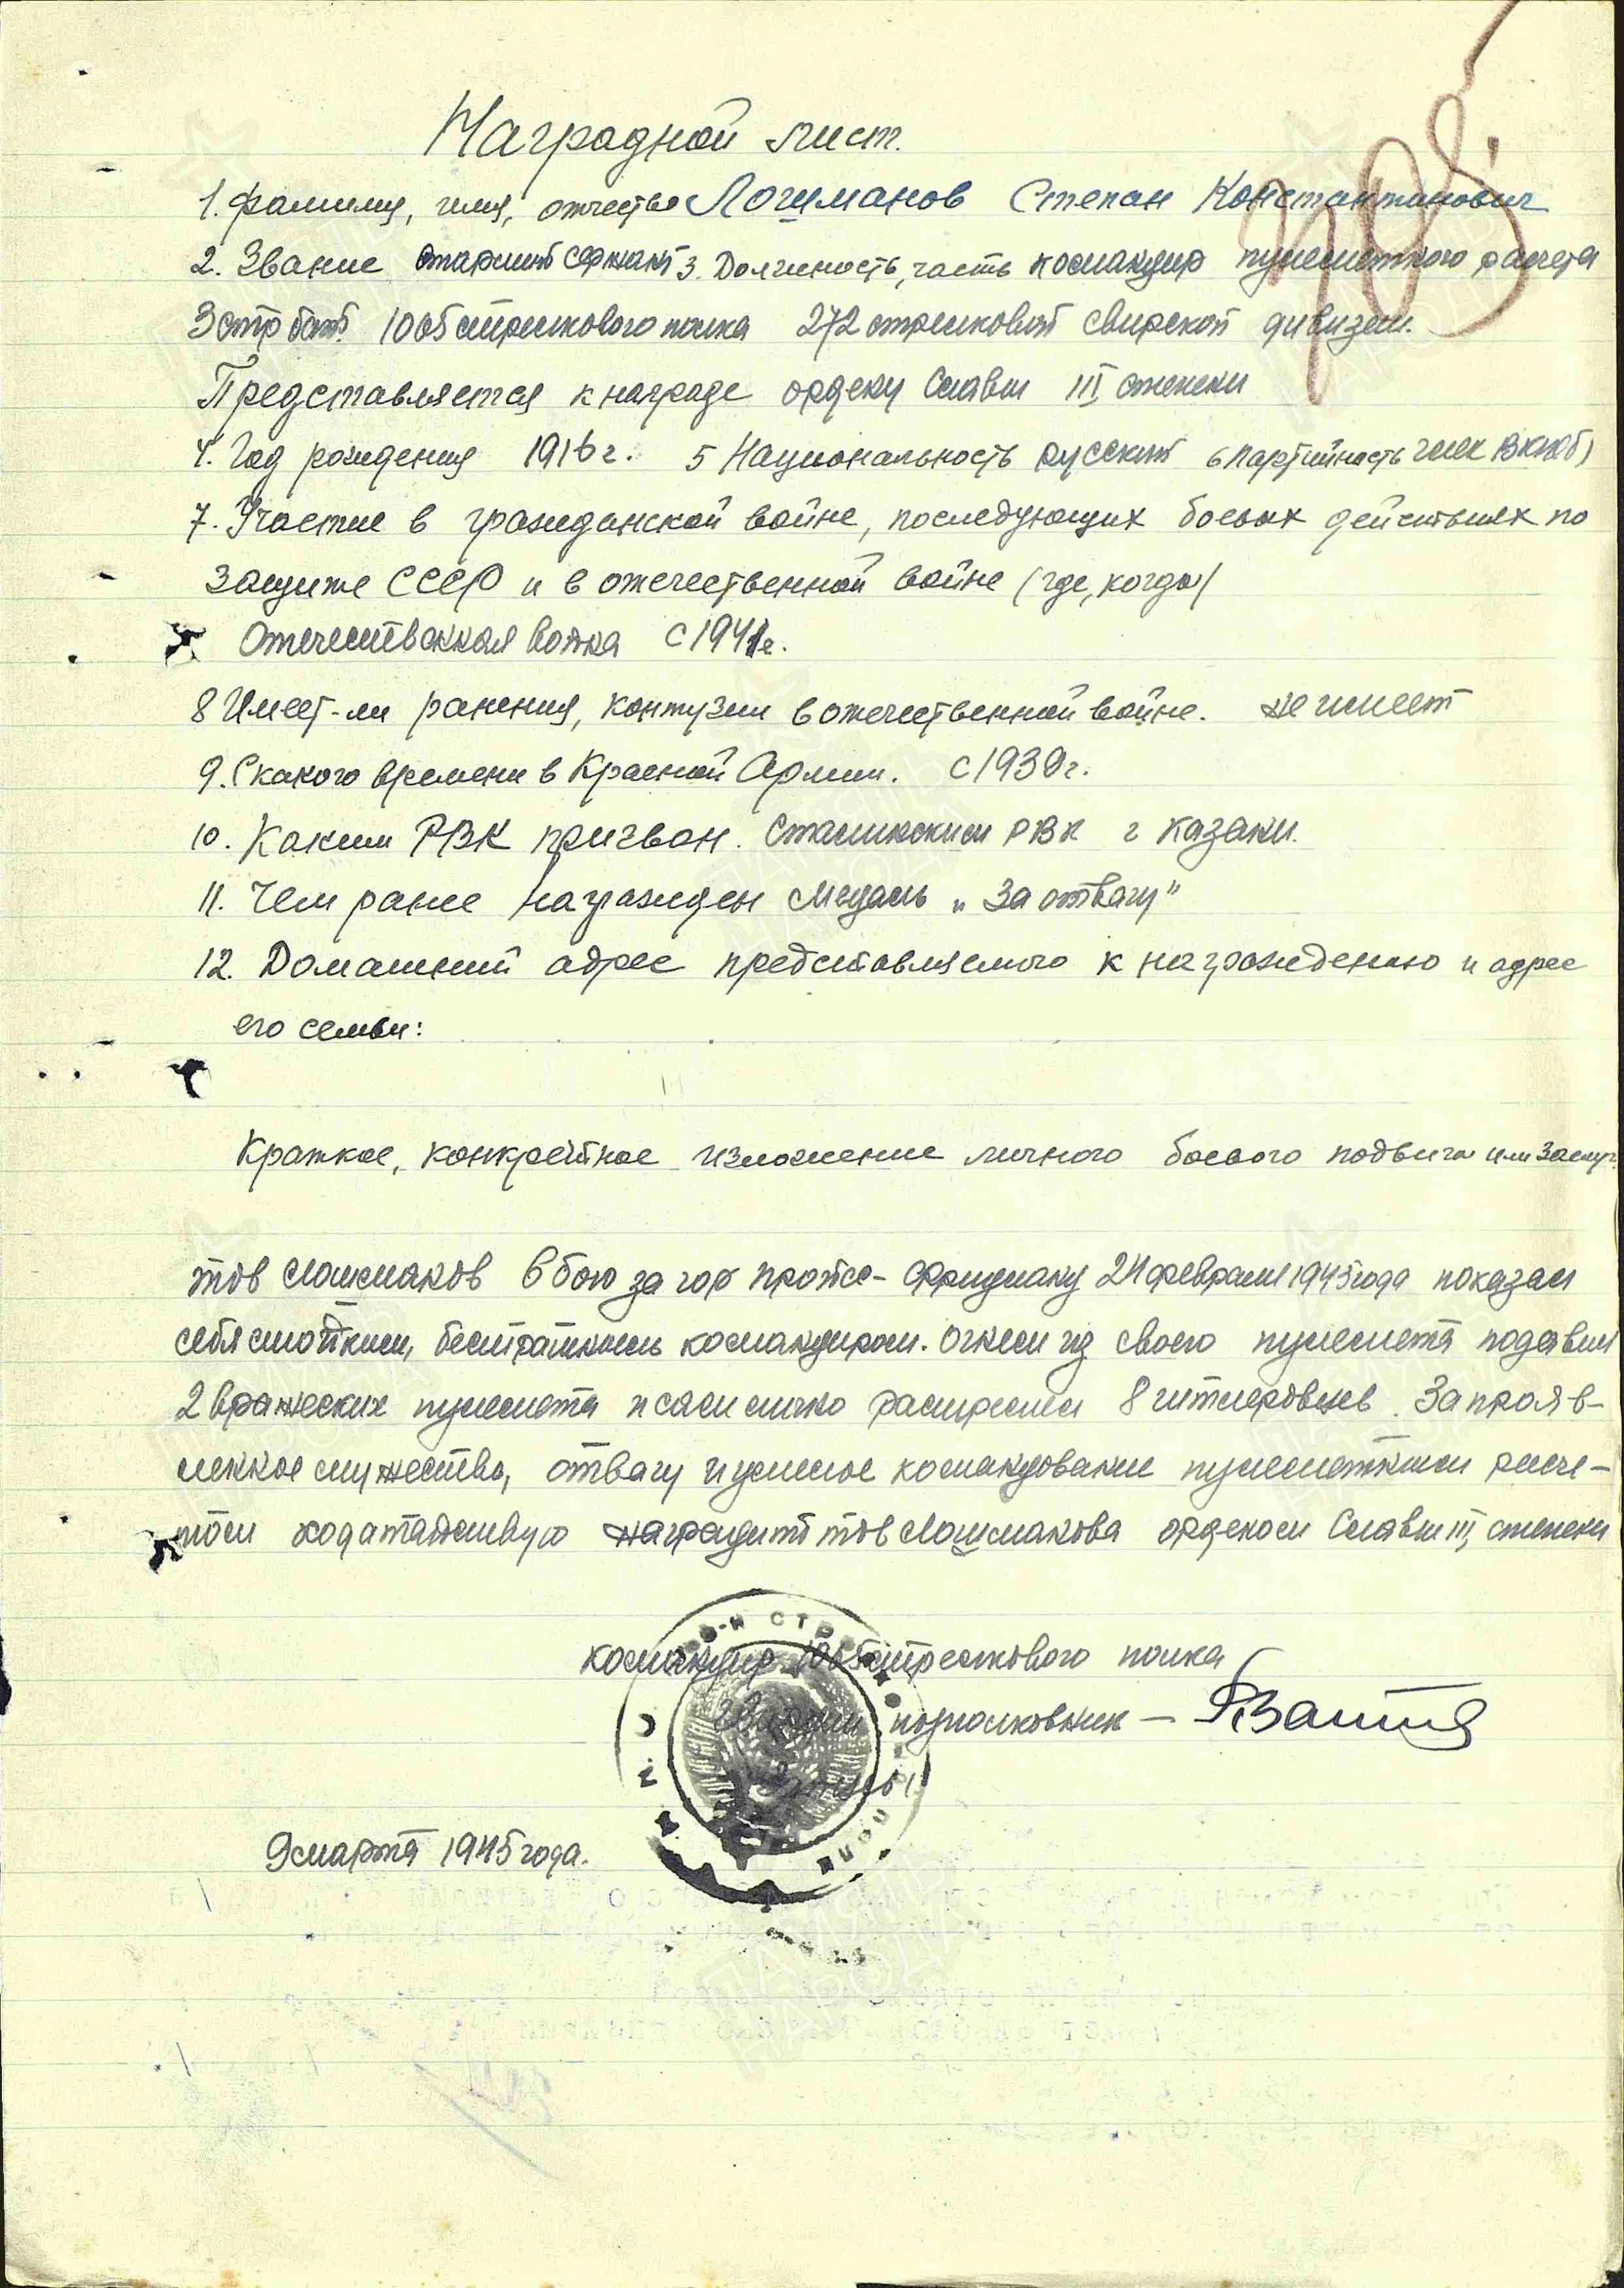 Наградной лист.
1. Фамилия, имя, отчество Лошманов Степан Константинович
2. Звание старший сержант 3. Должность, часть командир пулеметного расчета
3 стр бат. 1065 стрелкового полка 272 стрелковой свирской дивизии.
Представляется к награде ордену Славы III степени
4. Год рождения 1916 г. 5 Национальность русский 6 Партийность член ВКП(б)
7. Участие в гражданской войне, последующих боевых действиях по
защите СССР и в отечественной войне (где, когда)
Отечественная война с 1941 г.
8 Имеет-ли ранения, контузии в отечественной войне. не имеет
9. С какого времени в Красной Армии. с 1939 г.
10. Каким РВК призван. Сталинским РВК г Казани.
11. Чем ранее награжден медаль „За отвагу"
12. Домашний адрес представляемого к награждению и адрес
его семьи:
Краткое, конкретное изложение личного боевого подвига или заслуг
тов Лошманов в бою за гор Пройсе-Фридланд 24 февраля 1945 года показал
себя стойким, бесстрашным командиром. Огнем из своего пулемета подавил
2 вражеских пулемета и сам лично расстрелял 8 гитлеровцев. За прояв-
ленное мужество, отвагу и умелое командование пулеметным расче-
том ходатайствую наградить тов Лошманова орденом Славы III степени
командир 1065 стрелкового полка
гвардии подполковник —
9 марта 1945 года.
ПАМЯТЬ НАРОДА